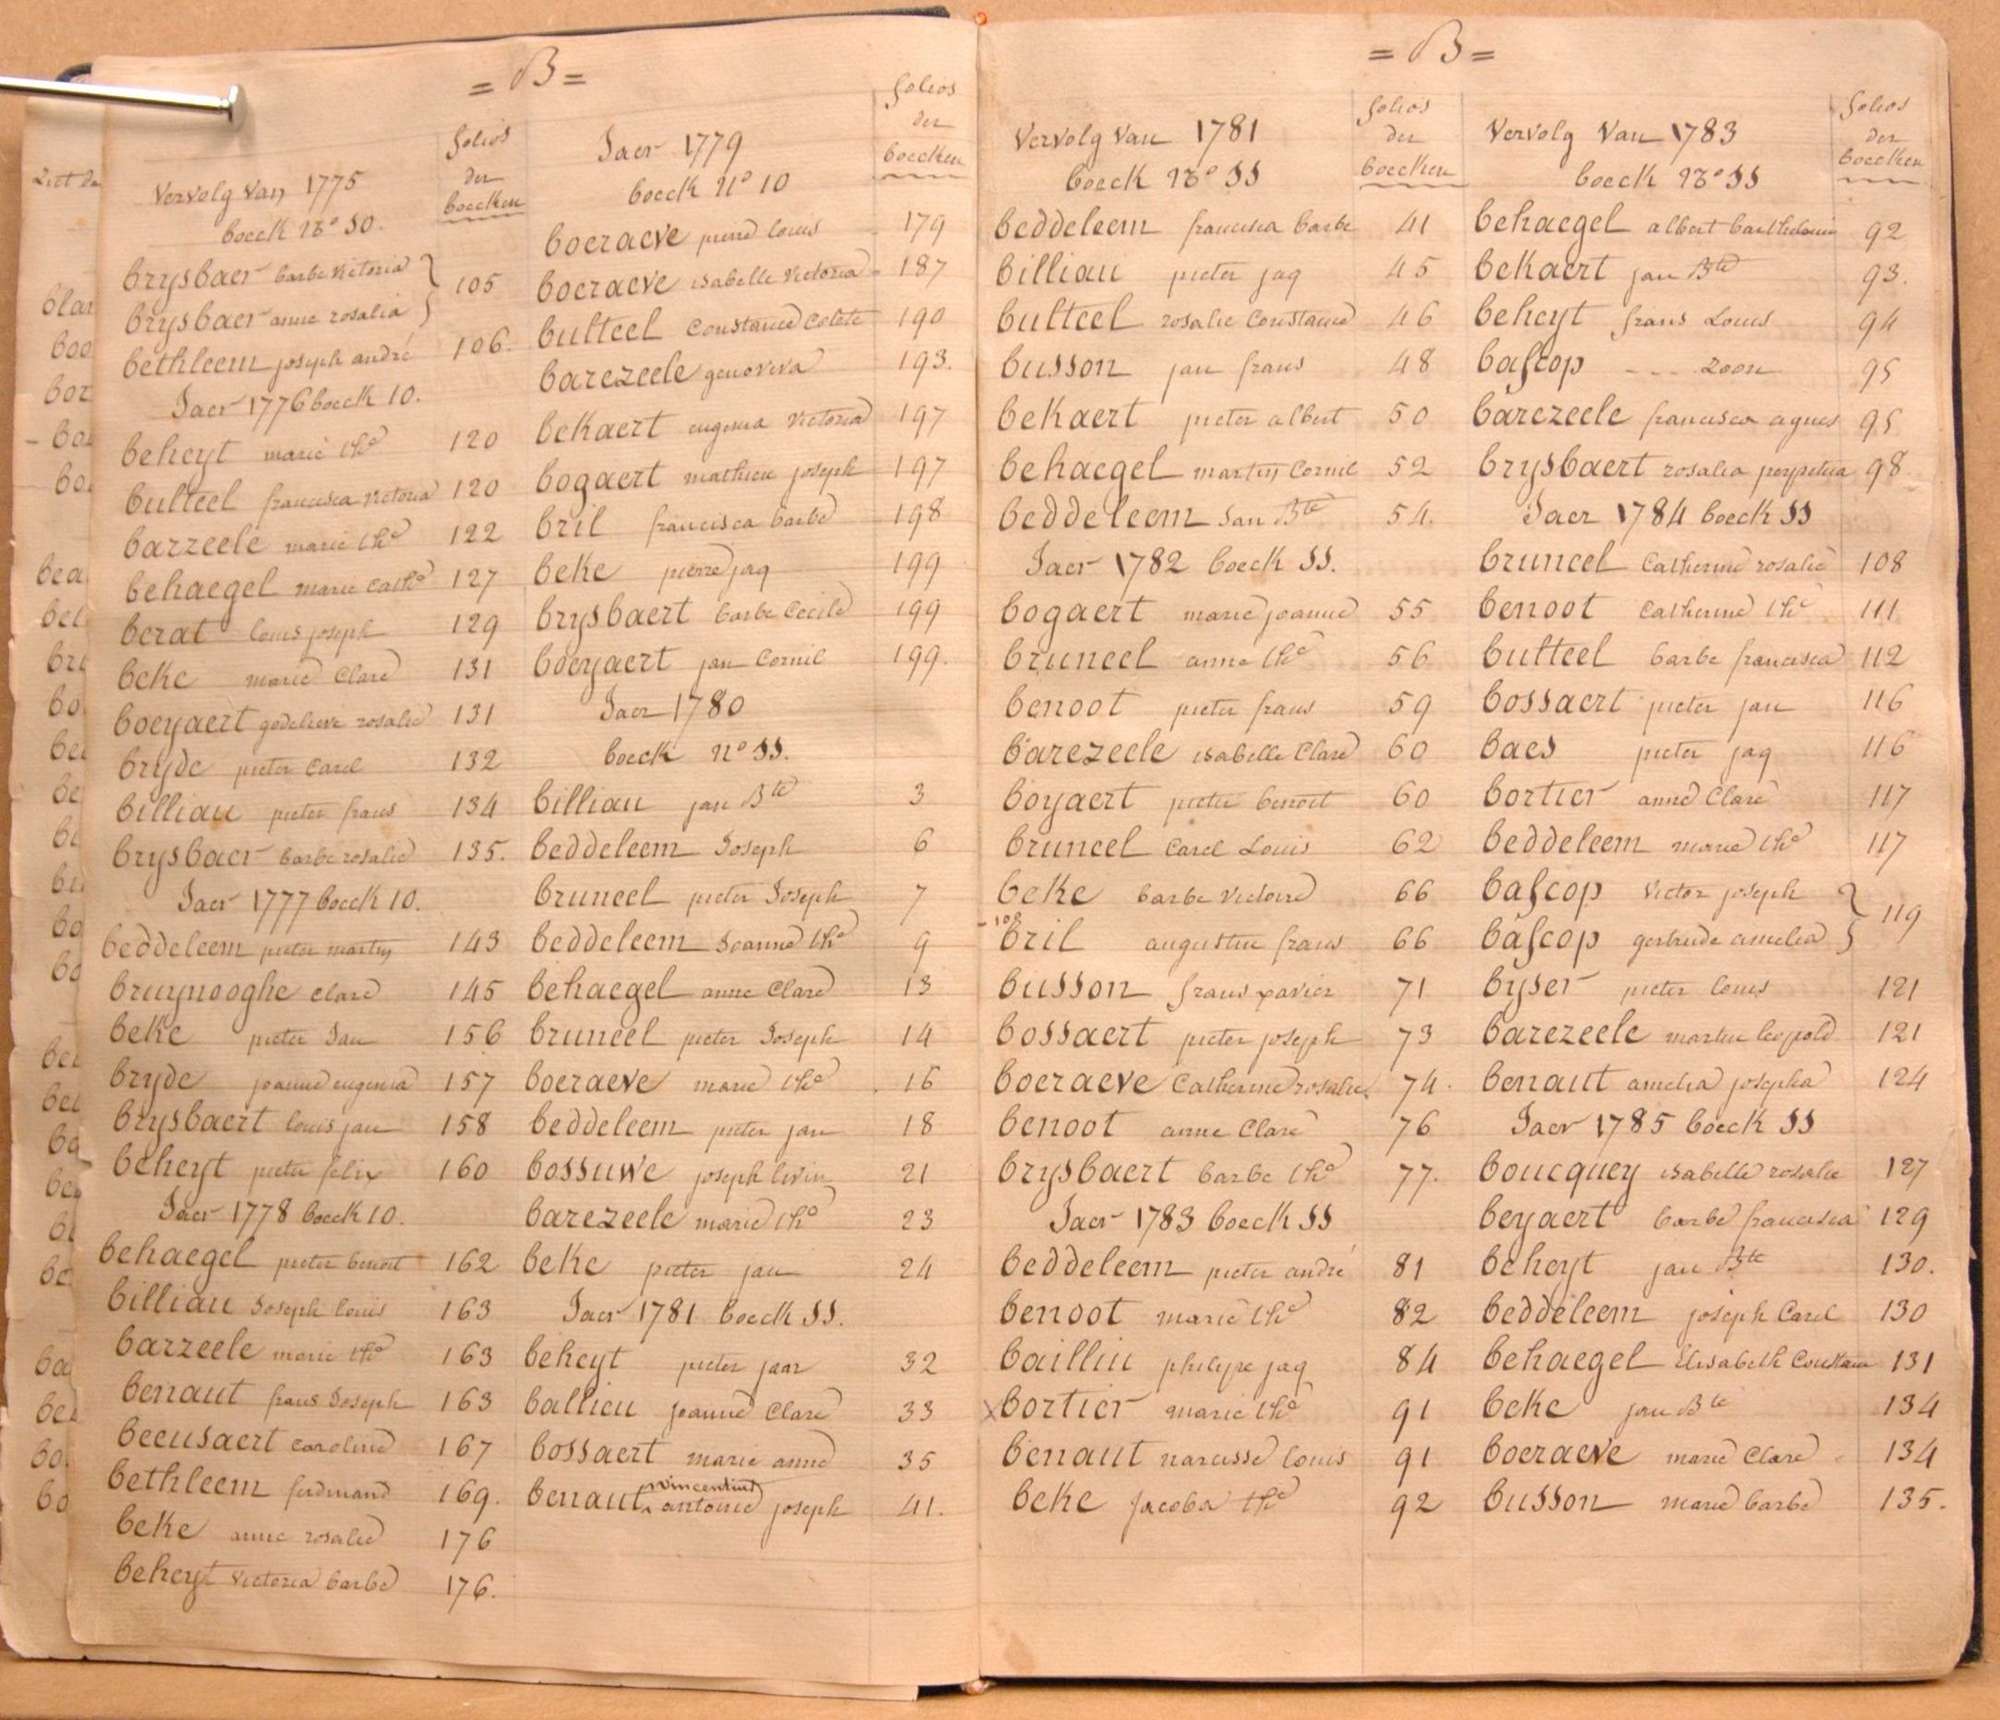 = B =
Vervolg van 1775
boeck No 10.
folios
der
boecken
brysbaer barbe victoria } 105
brysbaer anne rosalia }
bethleem joseph andré 106.
Jaer 1776 boeck 10.
beheyt marie the 120
bulteel francisca victoria 120
barzeele marie the 122
behaegel marie cathe 127
berat louis joseph 129
beke marie clare 131
boeyaert godelieve rosalie 131
bryde pieter carel 132
billiau pieter frans 134
brysbaer barbe rosalie 135.
Jaer 1777 boeck 10.
beddeleem pieter martin 143
bruynooghe clare 145
beke pieter Jan 156
bryde joanne eugenia 157
brysbaert louis jan 158
beheyt pieter felix 160
Jaer 1778 boeck 10.
behaegel pieter benoit 162
billiau Joseph louis 163
barzeele marie the 163
benaut frans Joseph 163
beeusaert caroline 167
bethleem ferdinand 169.
beke anne rosalie 176
beheyt victoria barbe 176.
Jaer 1779
boeck No 10
folios
der
boecken
boeraeve pierre louis 179
boeraeve isabelle victoria 187
bulteel constance colete 190
barezeele genoviva 193.
bekaert eugenia victoria 197
bogaert mathieu joseph 197
bril francisca barbe 198
beke pierre jaq 199
brysbaert barbe cecile 199
boeyaert jan cornil 199.
Jaer 1780
boeck No 11.
billiau jan Bte 3
beddeleem Joseph 6
bruneel pieter Joseph 7
beddeleem Joanne the 9
behaegel anne clare 13
bruneel pieter Joseph 14
boeraeve marie the 16
beddeleem pieter jan 18
bossuwe joseph livin 21
barezeele marie the 23
beke pieter jan 24
Jaer 1781 boeck 11.
beheyt pieter jaar 32
ballieu joanne clare 33
bossaert marie anne 35
vincentius
benaut antoine joseph 41.
= B =
Vervolg van 1781
boeck No 11
folios
der
boecken
beddeleem francisca barbe 41
billiau pieter jaq 45
bulteel rosalie constance 46
busson jan frans 48
bekaert pieter albert 50
behaegel martin cornil 52
beddeleem Jan Bte 54.
Jaer 1782 boeck 11.
bogaert marie joanne 55
bruneel anne the 56
benoot pieter frans 59
barezeele isabelle clare 60
boyaert pieter benoit 60
bruneel carel Louis 62
beke barbe victoire 66
108
bril augustin frans 66
busson frans xavier 71
bossaert pieter joseph 73
boeraeve catherine rosalie 74.
benoot anne clare 76
brysbaert barbe the 77.
Jaer 1783 boeck 11
beddeleem pieter andré 81
benoot marie the 82
bailliu philipe jaq 84
x bortier marie the 91
benaut narcisse louis 91
beke Jacoba the 92
Vervolg van 1783
boeck No 11
folios
der
boecken
behaegel albert 92
bekaert jan Bte 93.
beheyt frans Louis 94
bascop --- zoon 95
barezeele francisca agnes 95
brysbaert rosalia perpetua 98
Jaer 1784 boeck 11
bruneel catherine rosalie 108
benoot catherine the 111
bulteel barbe francisca 112
bossaert pieter jan 116
baes pieter jaq 116
bortier anne clare 117
beddeleem marie the 117
bascop victor joseph } 119
bascop gertrude amelia }
byser pieter louis 121
barezeele martin leopold 121
benaut amelia josepha 124
Jaer 1785 boeck 11
boucquey isabelle rosalie 127
beyaert barbe francisca 129
beheyt jan Bte 130.
beddeleem joseph carel 130
behaegel Elisabeth Constan 131
beke jan Bte 134
boeraeve marie clare 134
busson marie barbe 135.